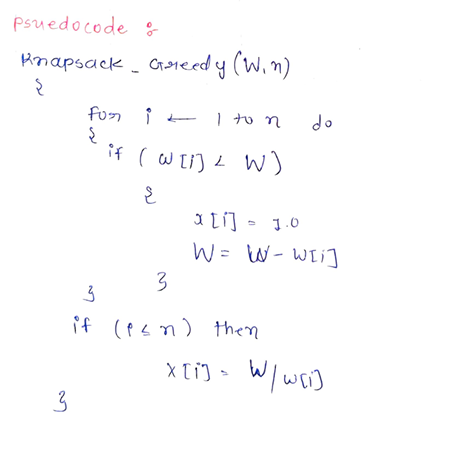 Psuedocode :
Knapsack_Greedy (W,n)
{
for i ← 1 to n do
{
if ( w[i] < W )
{
x[i] = 1.0
W = W - w[i]
}
}
if (i ≤ n) then
x[i] = W/w[i]
}